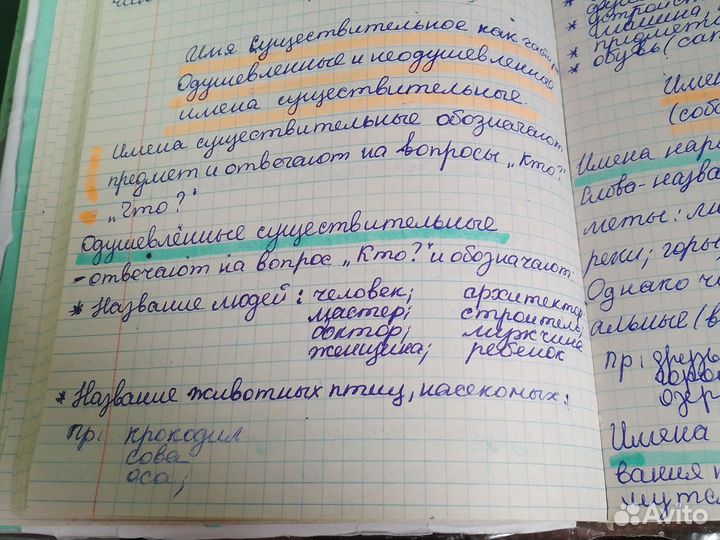 Имя существительное как
Одушевленные и неодушевленные
имена существительные.
Имена существительные обозначают
предмет и отвечают на вопросы „Кто?"
„Что?"
Одушевлённые существительные
- отвечают на вопрос „Кто?" и обозначают:
* Название людей: человек; архитектор;
мастер; строитель;
доктор; мужчина
женщина; ребёнок
* Название животных птиц, насекомых:
пр: крокодил
сова
оса;
* предмет
* обувь (сап
Имен
(собс
Имена нар
Слова-назва
меты: ли
реки; горы
Однако ч
альные (в
пр: друзь
озер
Имена
вания
Avito